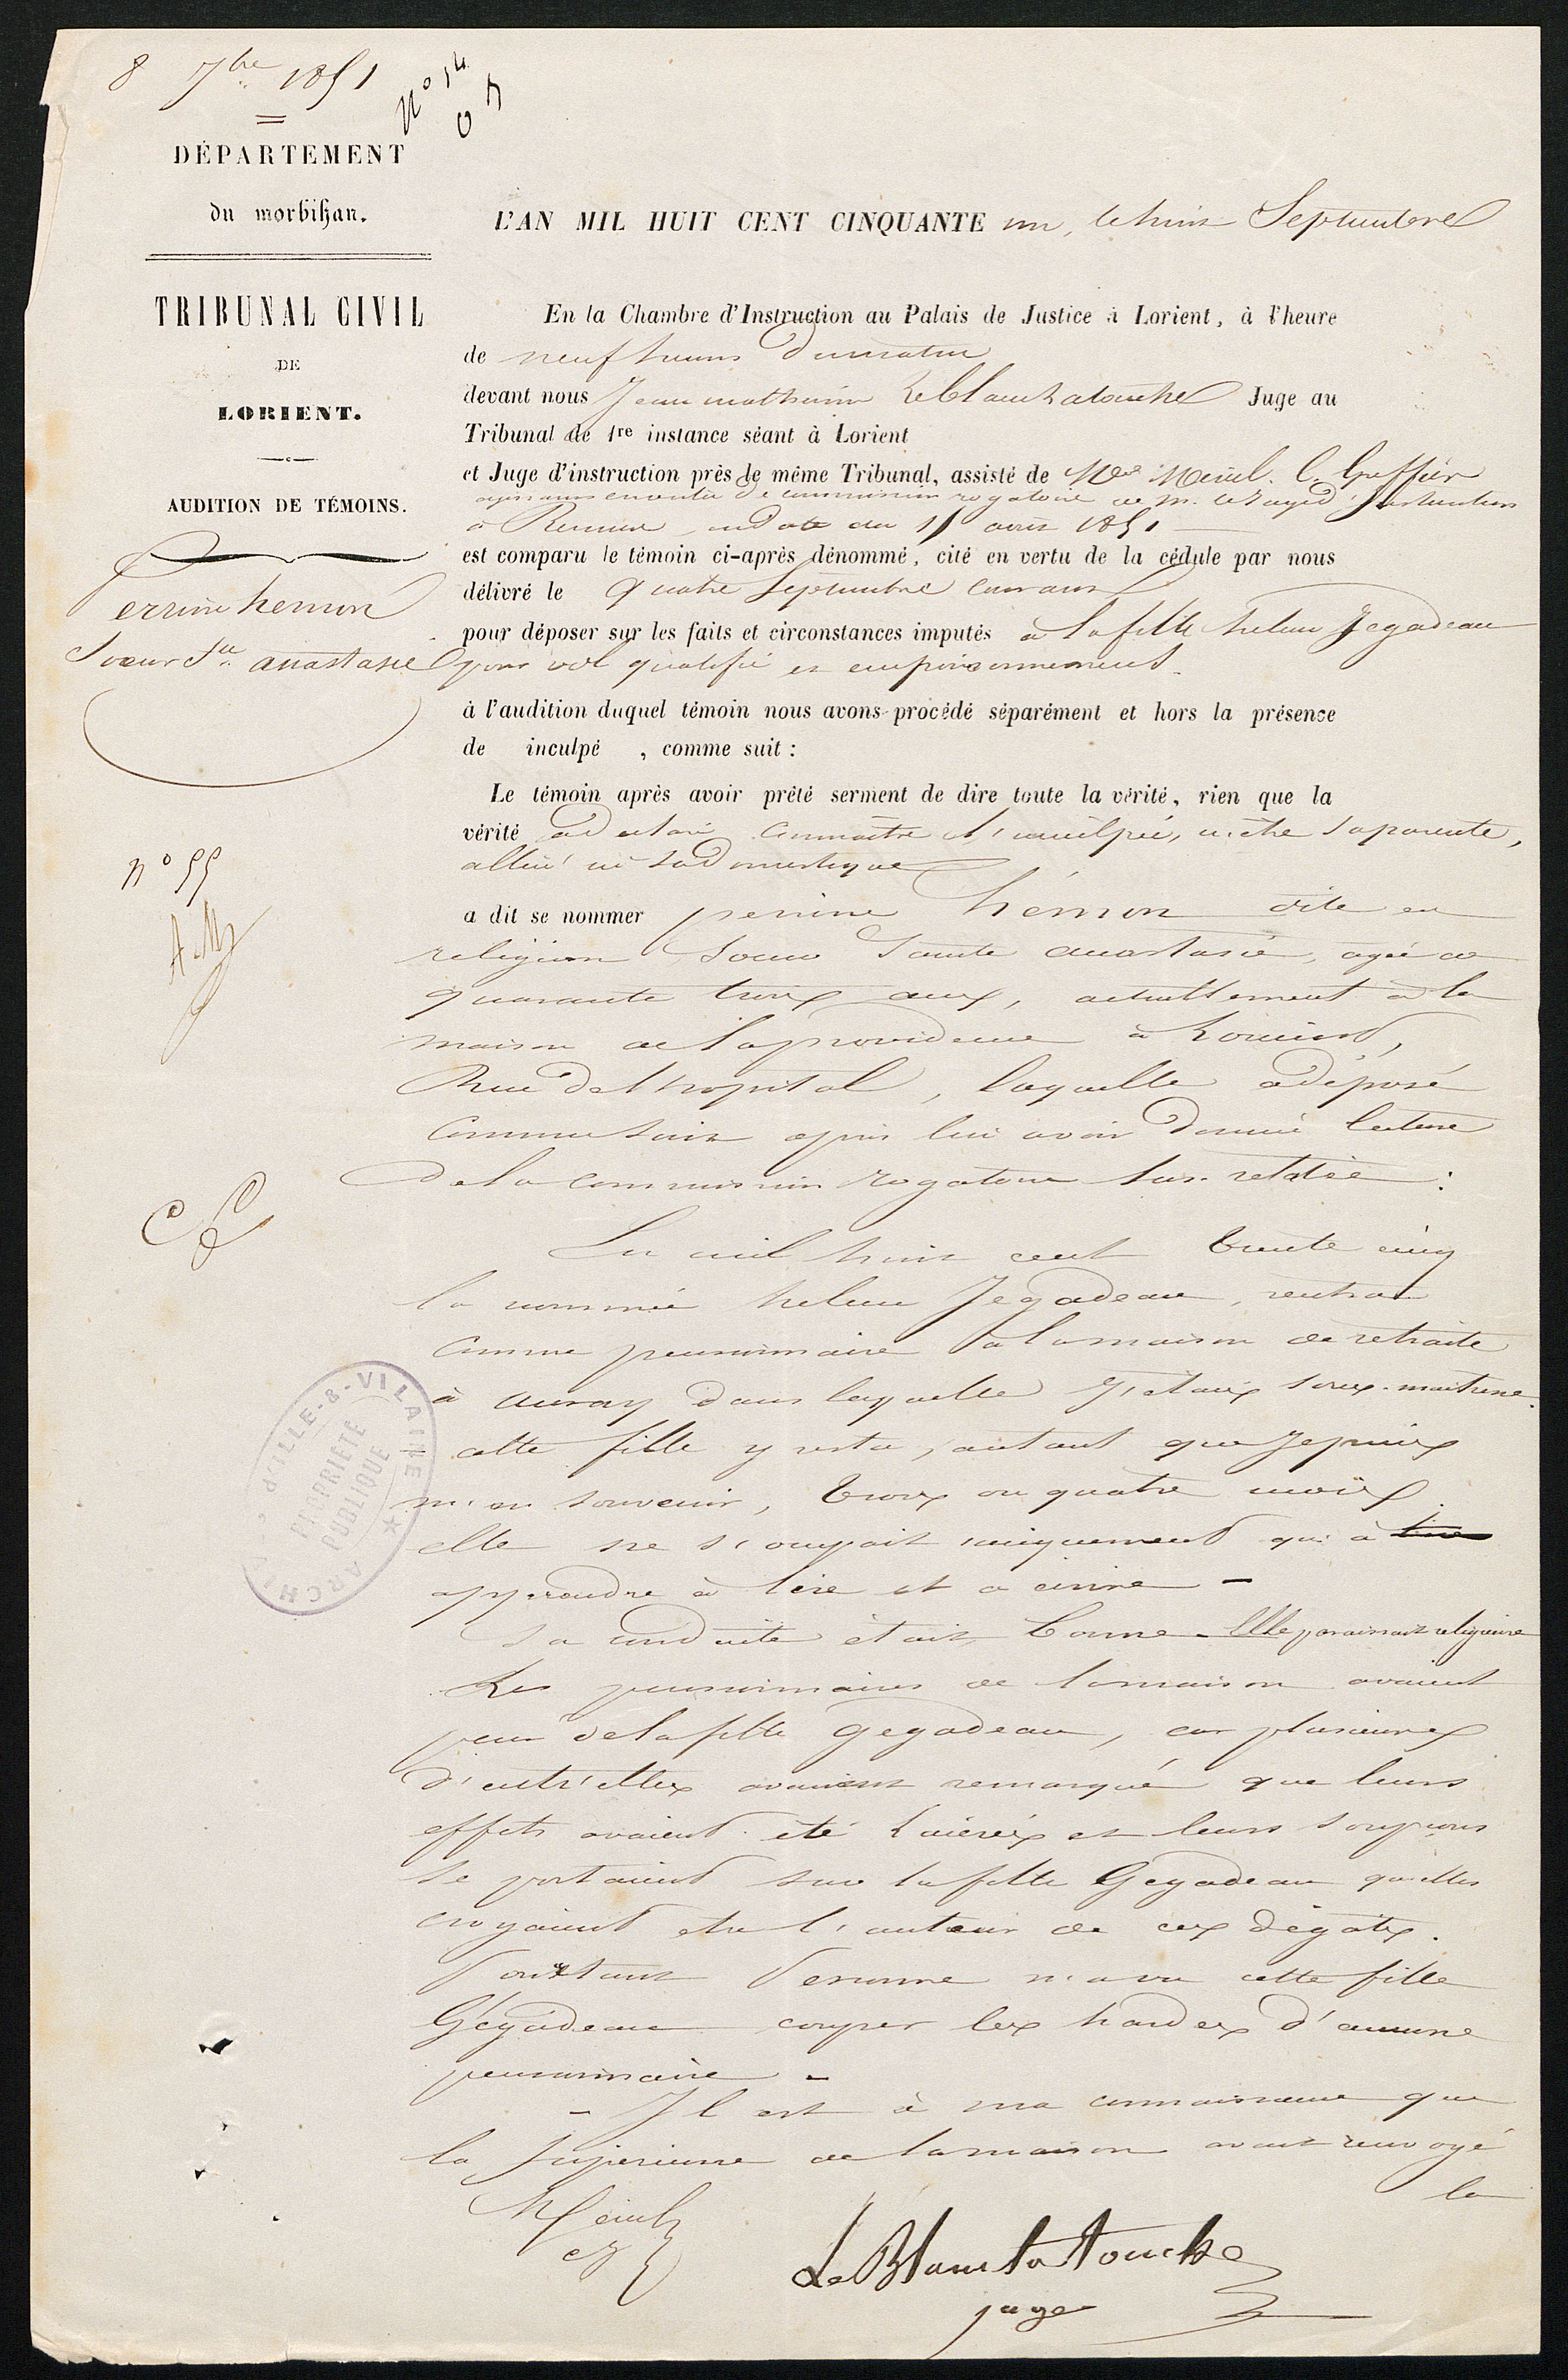 8 7bre 1851
N° 14
DÉPARTEMENT
du morbihan.
TRIBUNAL CIVIL
DE
LORIENT.
AUDITION DE TÉMOINS.
Perrine hemon
Soeur Ste anastasie
n° 55
L'AN MIL HUIT CENT CINQUANTE un, le huit Septembre
En la Chambre d'Instruction au Palais de Justice à Lorient, à l'heure
de neuf heures du matin
devant nous Jean mathurin Leblanc Latouche Juge au
Tribunal de 1re instance séant à Lorient
et Juge d'instruction près le même Tribunal, assisté de C. Greffier
agissant en vertu de commission rogatoire de M. le Juge d'instruction
à Rennes, en date du août 1851
est comparu le témoin ci-après dénommé, cité en vertu de la cédule par nous
délivré le quatre Septembre courant
pour déposer sur les faits et circonstances imputés à la fille helene Jegadeau
pour vol qualifié et empoisonnement
à l'audition duquel témoin nous avons procédé séparément et hors la présence
de inculpé , comme suit :
Le témoin après avoir prêté serment de dire toute la vérité, rien que la
vérité a déclaré connaitre l'inculpée, n'etre sa parente,
alliée ni sa domestique
a dit se nommer perrine hémon dite en
religion Soeur Sainte anastasie, agée de
quarante trois ans, actuellement à la
maison de la providence à Lorient,
Rue de l'hopital, laquelle a déposé
comme suit après lui avoir donné lecture
de la commission rogatoire sus-relatée :
En mil huit cent trente cinq
la nommée helene Jegadeau, rentra
comme pensionnaire à la maison de retraite
à auray dans laquelle j'étais sous-maitresse.
cette fille y resta, autant que je puis
m'en souvenir, trois ou quatre mois.
elle ne s'occupait uniquement qu'à
apprendre à lire et a ecrire -
Sa conduite était bonne - Elle paraissait religieuse
Les pensionnaires de la maison avaient
peur de la fille gegadeau, car plusieurs
d'entr'elles avaient remarqué que leurs
effets avaient été lacérés et leurs soupçons
se portaient sur la fille Gegadeau qu'elles
croyaient etre l'auteur de ces dégats.
Pourtant Personne n'a vu cette fille
Gégadeau couper les hardes d'aucune
pensionnaire -
- Il est à ma connaissance que
la Supérieure de la maison avait renvoyé
la
LeBlanc la Touche
juge
ARCHIVES D'ILLE-&-VILAINE
PROPRIÉTÉ
PUBLIQUE